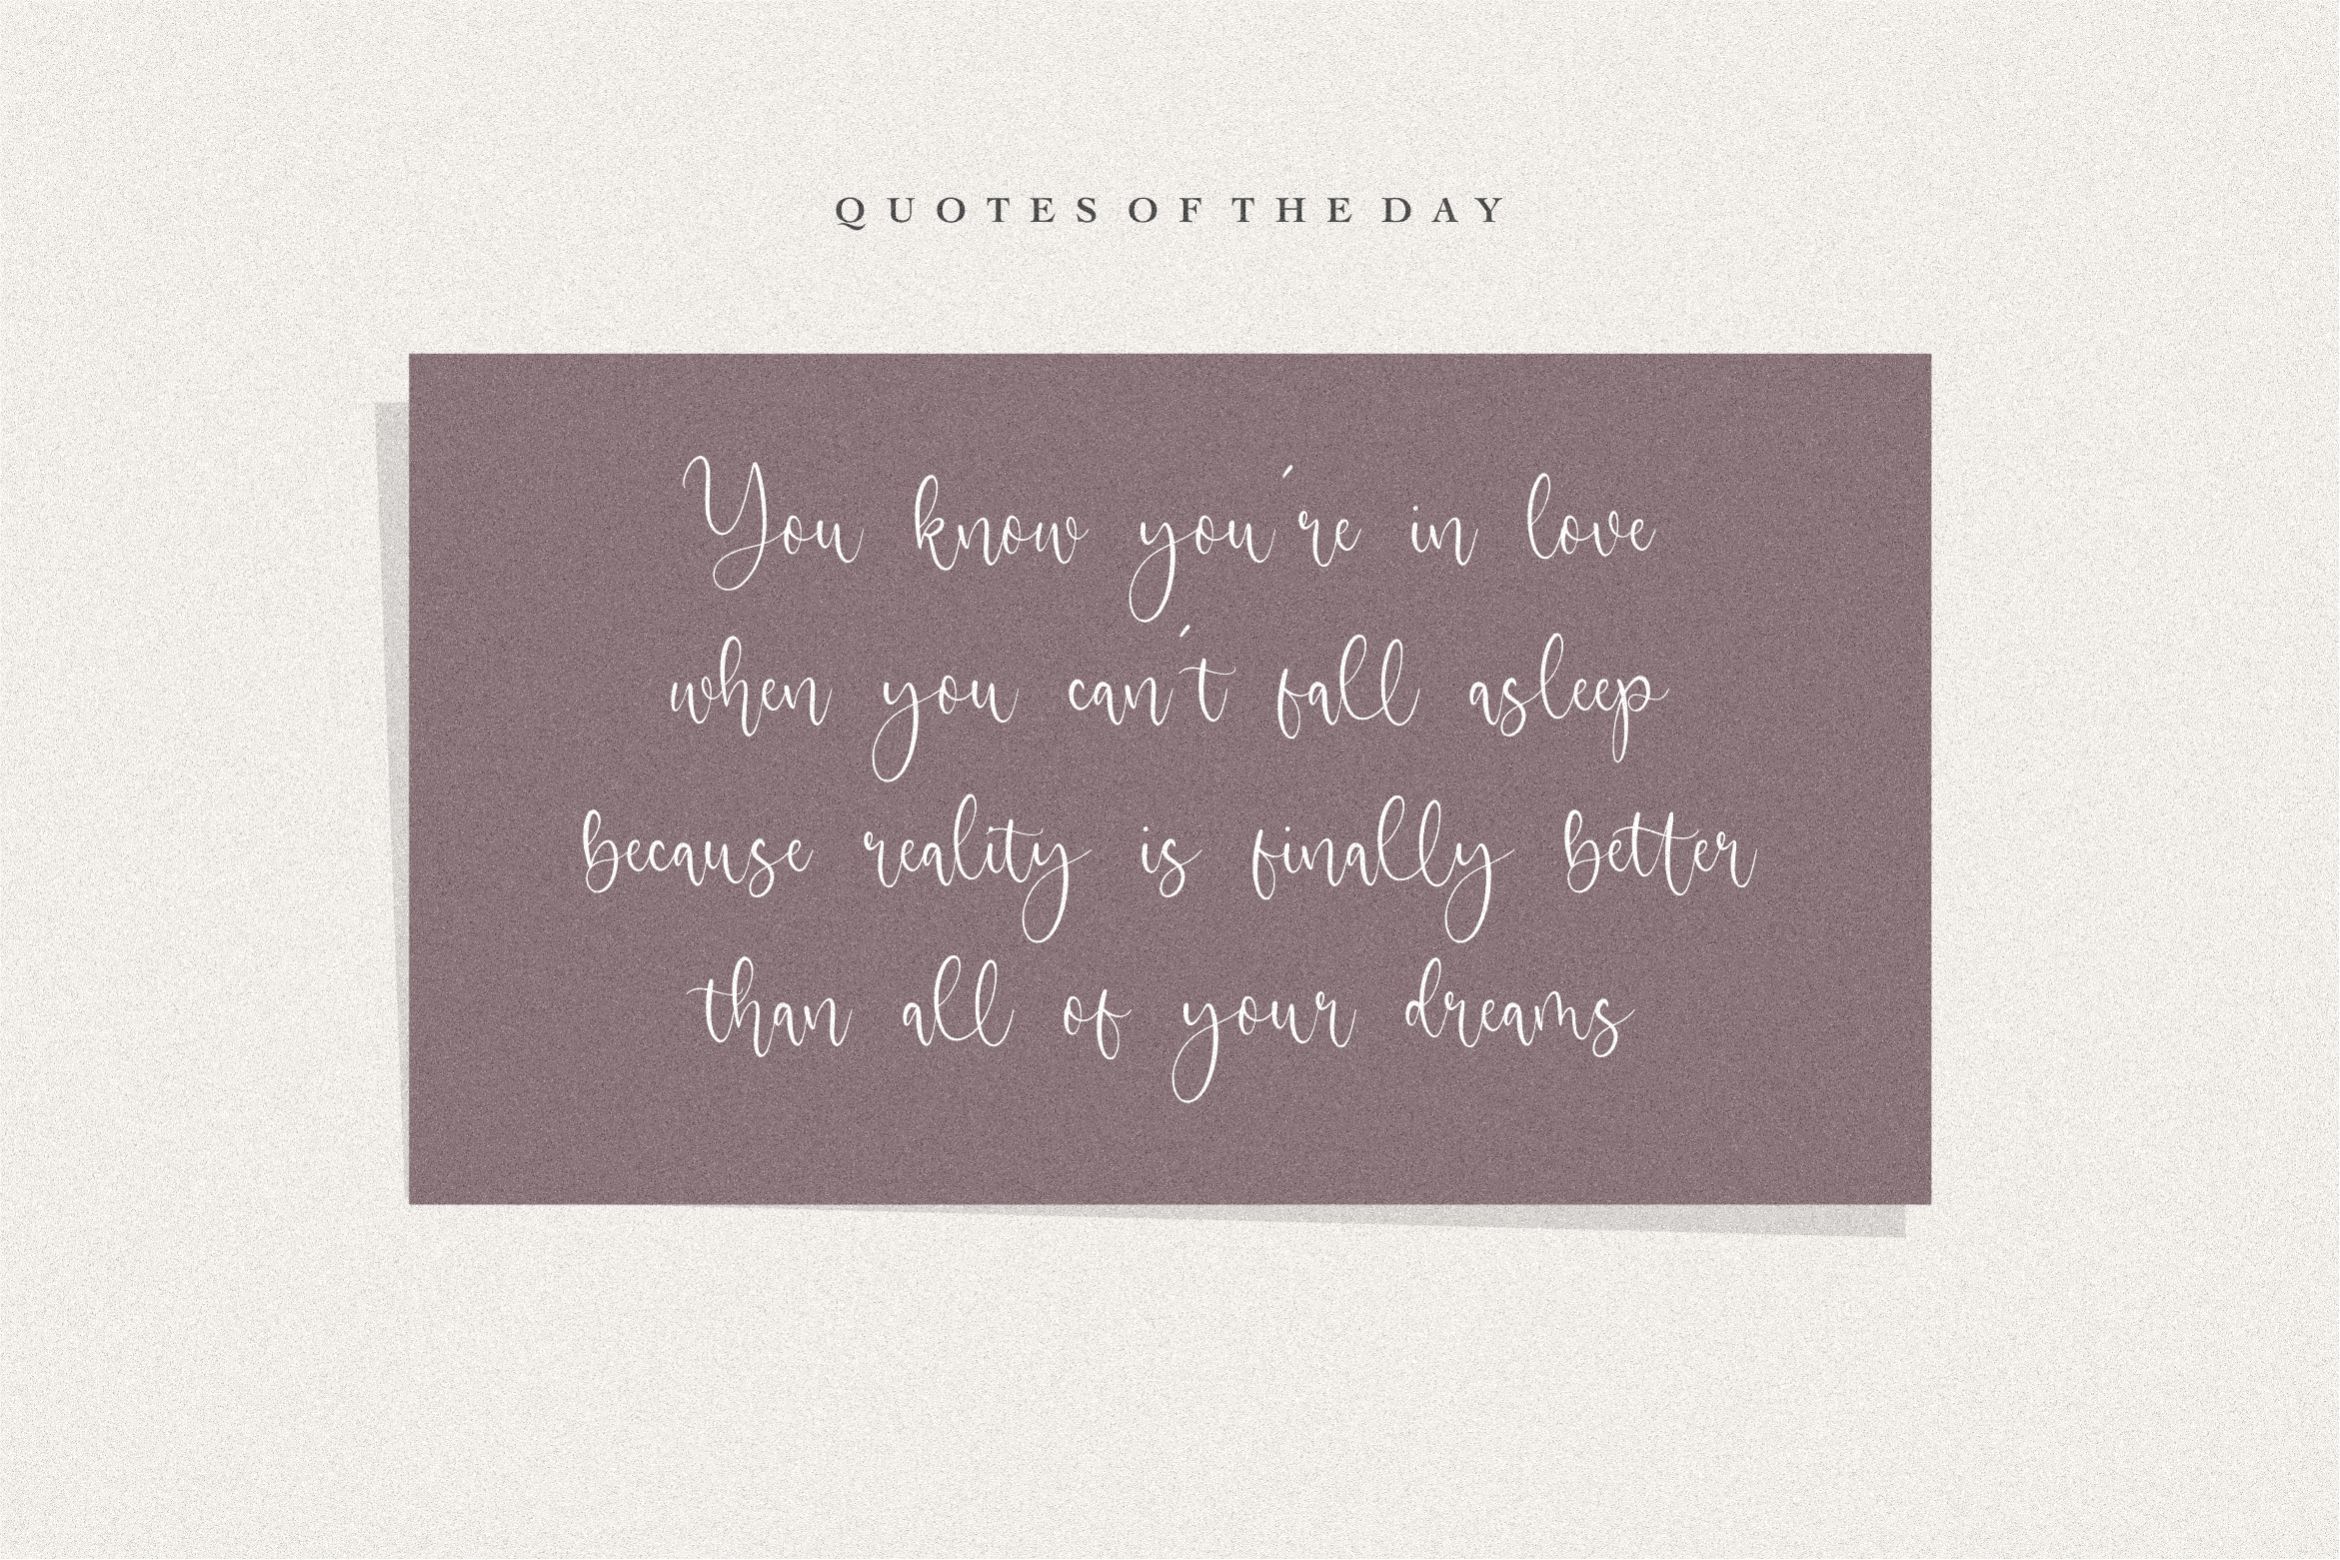 QUOTES OF THE DAY
You know you're in love
when you can't fall asleep
because reality is finally better
than all of your dreams